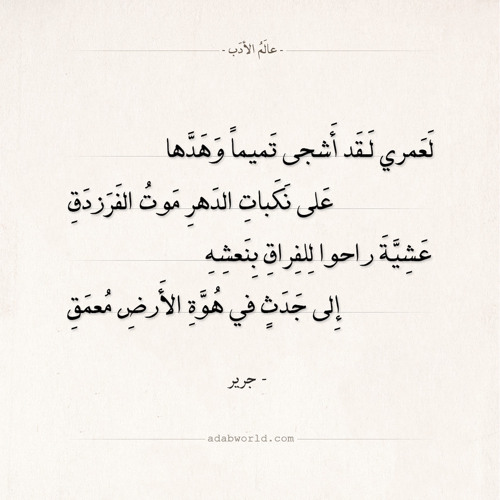 - عالَمُ الأدَب -
لَعَمري لَقَد أَشجى تَميماً وَهَدَّها
عَلى نَكَباتِ الدَهرِ مَوتُ الفَرَزدَقِ
عَشِيَّةَ راحوا لِلفِراقِ بِنَعشِهِ
إِلى جَدَثٍ في هُوَّةِ الأَرضِ مُعمَقِ
- جرير
adabworld.com